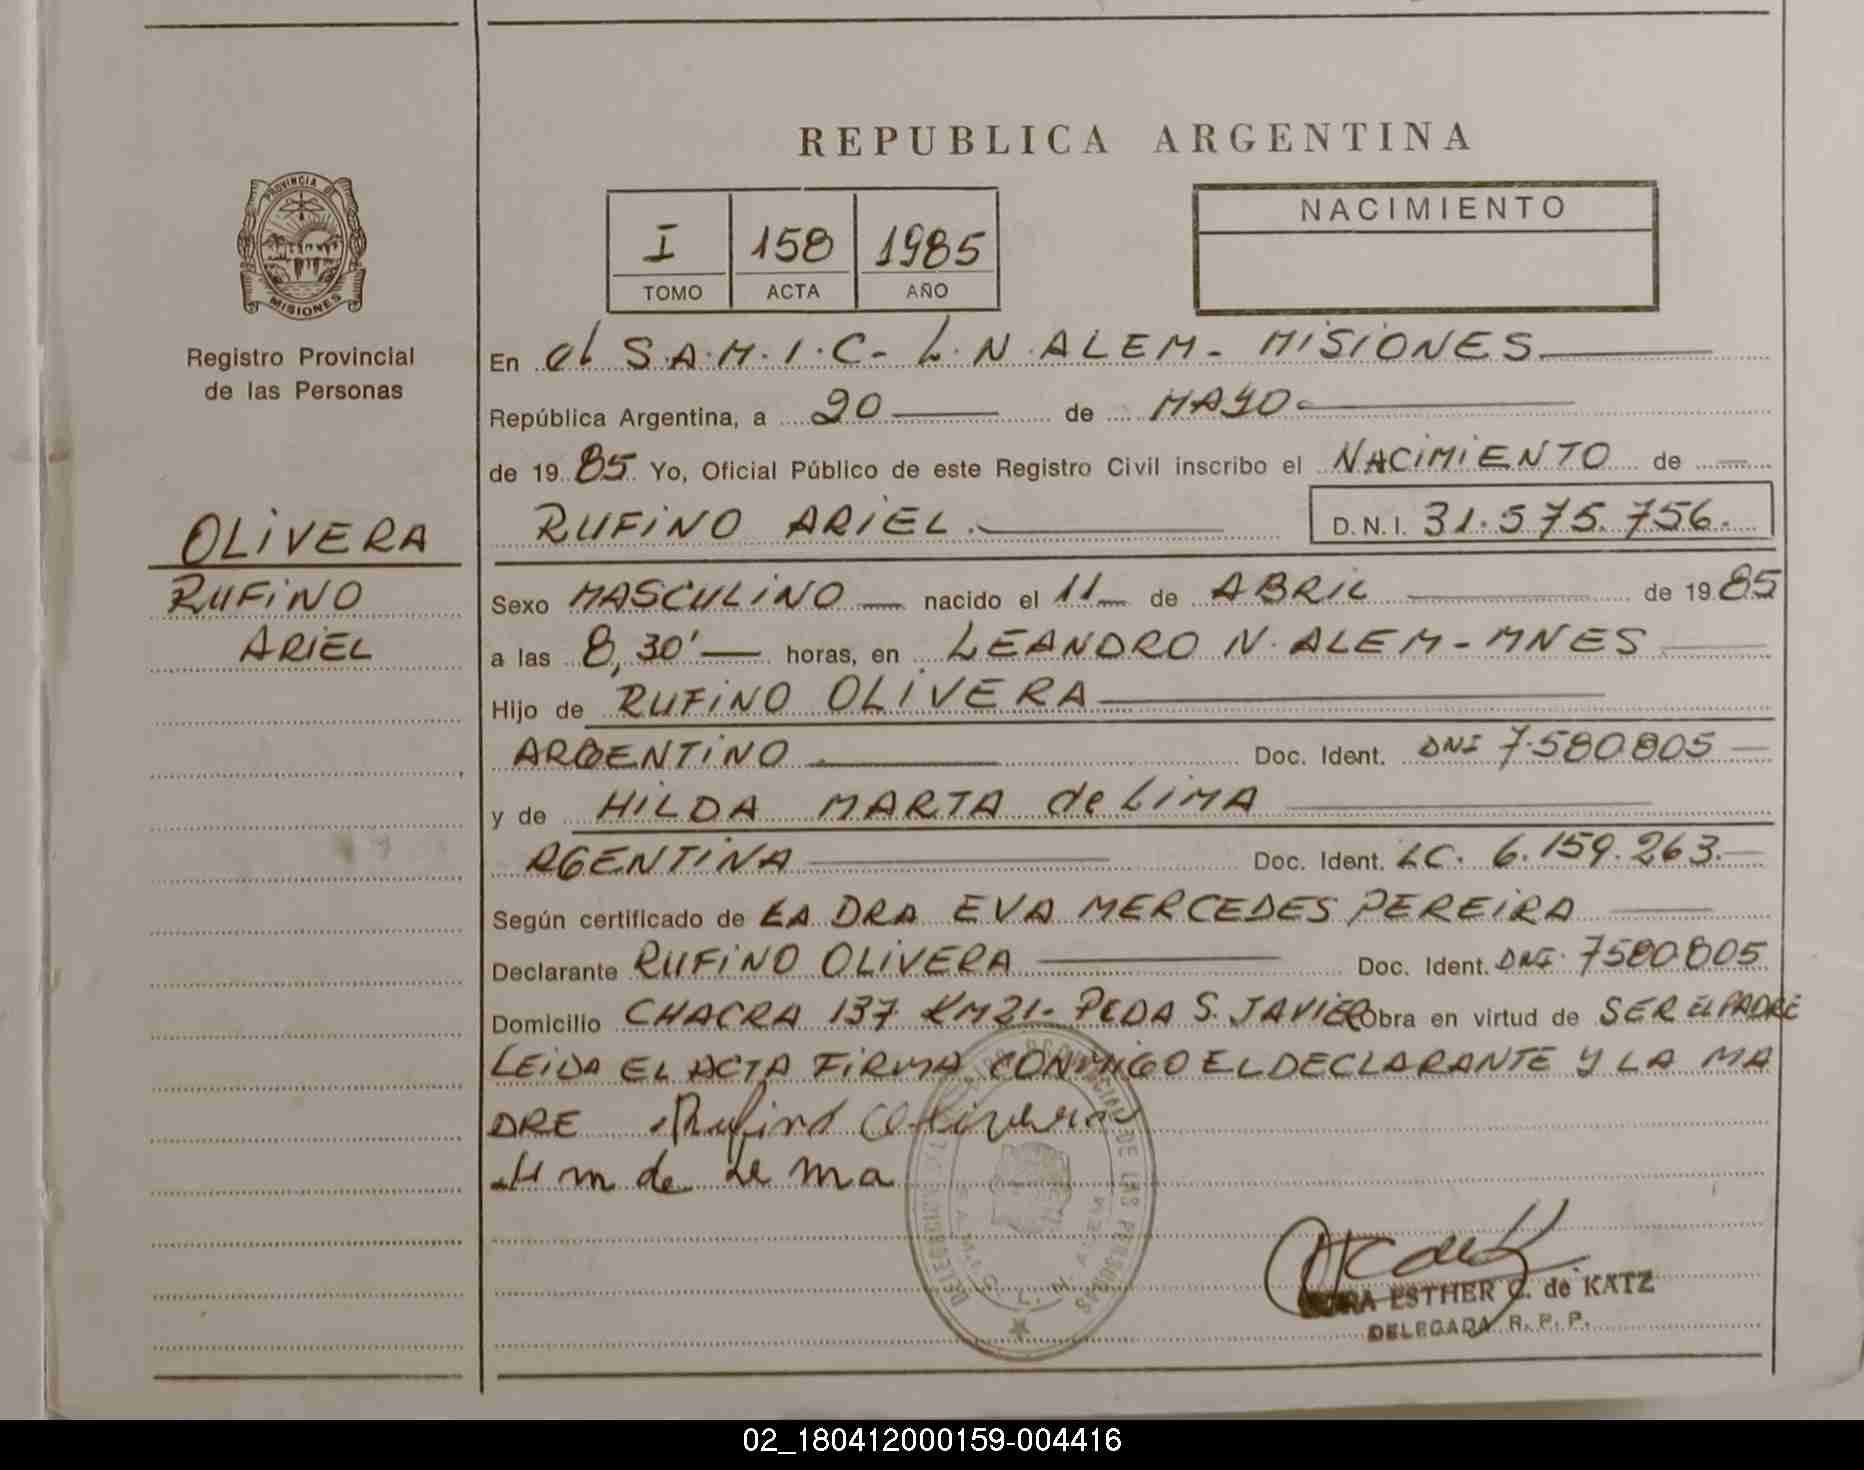 REPUBLICA ARGENTINA
PROVINCIA DE
MISIONES
Registro Provincial
de las Personas
OLIVERA
RUFINO
ARIEL
I 158 1985
TOMO ACTA AÑO
NACIMIENTO
En el S.A.M.I.C- L.N.ALEM- MISIONES
República Argentina, a 20 de MAYO
de 19 85 Yo, Oficial Público de este Registro Civil inscribo el NACIMIENTO de
RUFINO ARIEL. D.N.I. 31.575.756.
Sexo MASCULINO nacido el 11 de ABRIL de 19 85
a las 8,30' horas, en LEANDRO N. ALEM-MNES
Hijo de RUFINO OLIVERA
ARGENTINO Doc. Ident. DNI 7.580805
y de HILDA MARTA de LIMA
ARGENTINA Doc. Ident. LC. 6.159.263.
Según certificado de LA DRA EVA MERCEDES PEREIRA
Declarante RUFINO OLIVERA Doc. Ident. DNI. 7580805
Domicilio CHACRA 137 KM21- PCDA S. JAVIER Obra en virtud de SER EL PADRE
LEIDA EL ACTA FIRMA CONMIGO EL DECLARANTE Y LA MA
DRE Rufino Olivera
H m de Lima
ESTHER C. de KATZ
DELEGADA R. P. P.
02_180412000159-004416